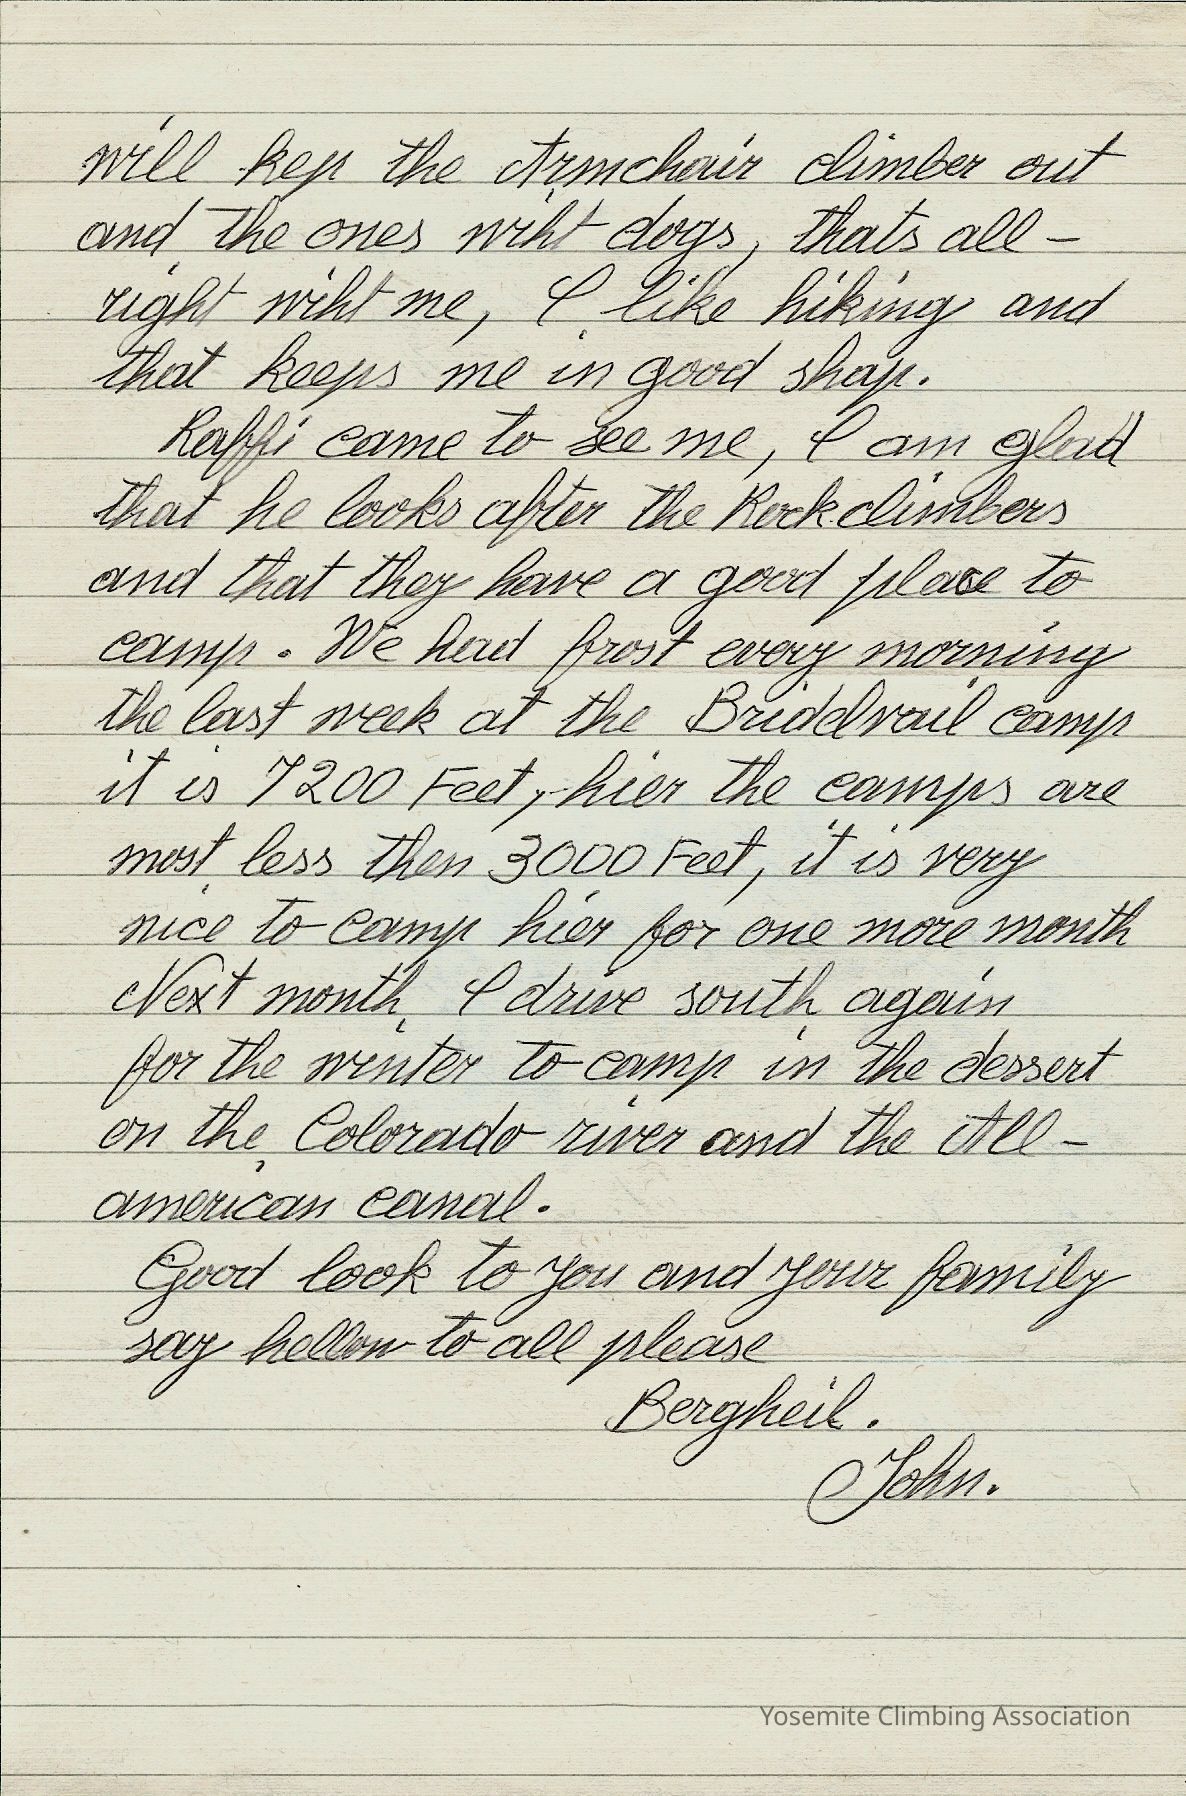 will kep the Armchair climber out
and the ones wiht dogs, thats all–
right wiht me, I like hiking and
that keeps me in good shap.
Raffi came to see me, I am glad
that he looks after the Rockclimbers
and that they have a good place to
camp. We had frost every morning
the last week at the Bridelvail camp
it is 7200 Feet, hier the camps are
most less then 3000 Feet, it is very
nice to camp hier for one more month
Next month I drive south again
for the winter to camp in the dessert
on the Colorado river and the All–
american canal.
Good look to you and your family
say hellow to all please
Bergheil.
John.
Yosemite Climbing Association